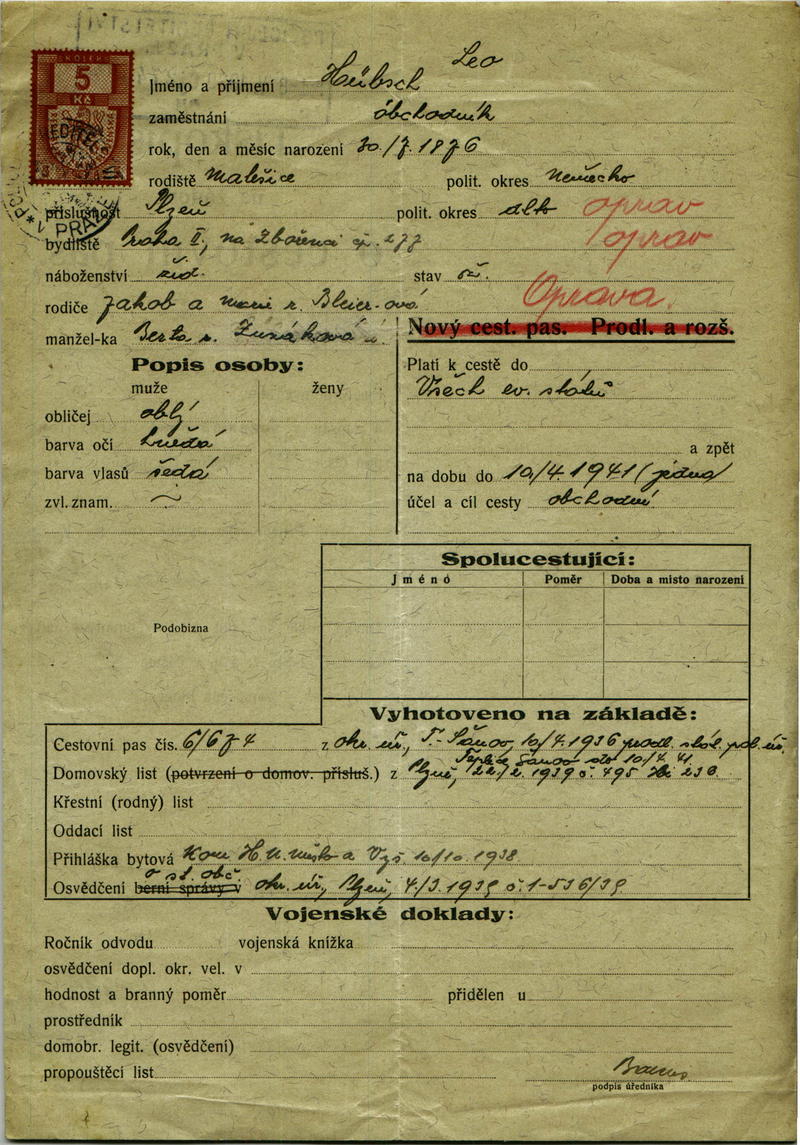 KOLEK
5
Kč
PRA
Leo
Jméno a příjmení Hübsch
zaměstnání obchodník
rok, den a měsíc narození 30./7. 1876
rodiště Malešice polit. okres Německo
příslušnost Plzeň polit. okres dtto oprav
bydliště Praha II., na Zbořenci čp. 277 oprav
náboženství žid. stav ž.
Oprava.
rodiče Jakob a Marie r. Bleier-ová
manžel-ka Berta r.
Nový cest. pas. Prodl. a rozš.
Popis osoby:
muže ženy
obličej oblý
barva očí hnědá
barva vlasů šedá
zvl. znam. ~
Platí k cestě do
Všech ev. států
a zpět
na dobu do 10/4. 1941 (jedna)
účel a cíl cesty obchodní
Spolucestující:
Jméno Poměr Doba a místo narození
Podobizna
Vyhotoveno na základě:
Cestovní pas čís. 6/674 z okr. úř., T.-Šanov, 10/4. 1936 prodl. stát. pol. úř.
Teplice Šanov do 10/4. 41
Domovský list (potvrzení o domov. přísluš.) z Plzeň, 22/2. 1939 č. 495 230
Křestní (rodný) list
Oddací list
Přihláška bytová Kom. Hl. m. Vyš. 10/10. 1938
o st. obč.
Osvědčení berní správy v okr. úř., Plzeň, 4/3. 1939 č. 1-536/39
Vojenské doklady:
Ročník odvodu vojenská knížka
osvědčení dopl. okr. vel. v
hodnost a branný poměr přidělen u
prostředník
domobr. legit. (osvědčení)
propouštěcí list
podpis úředníka